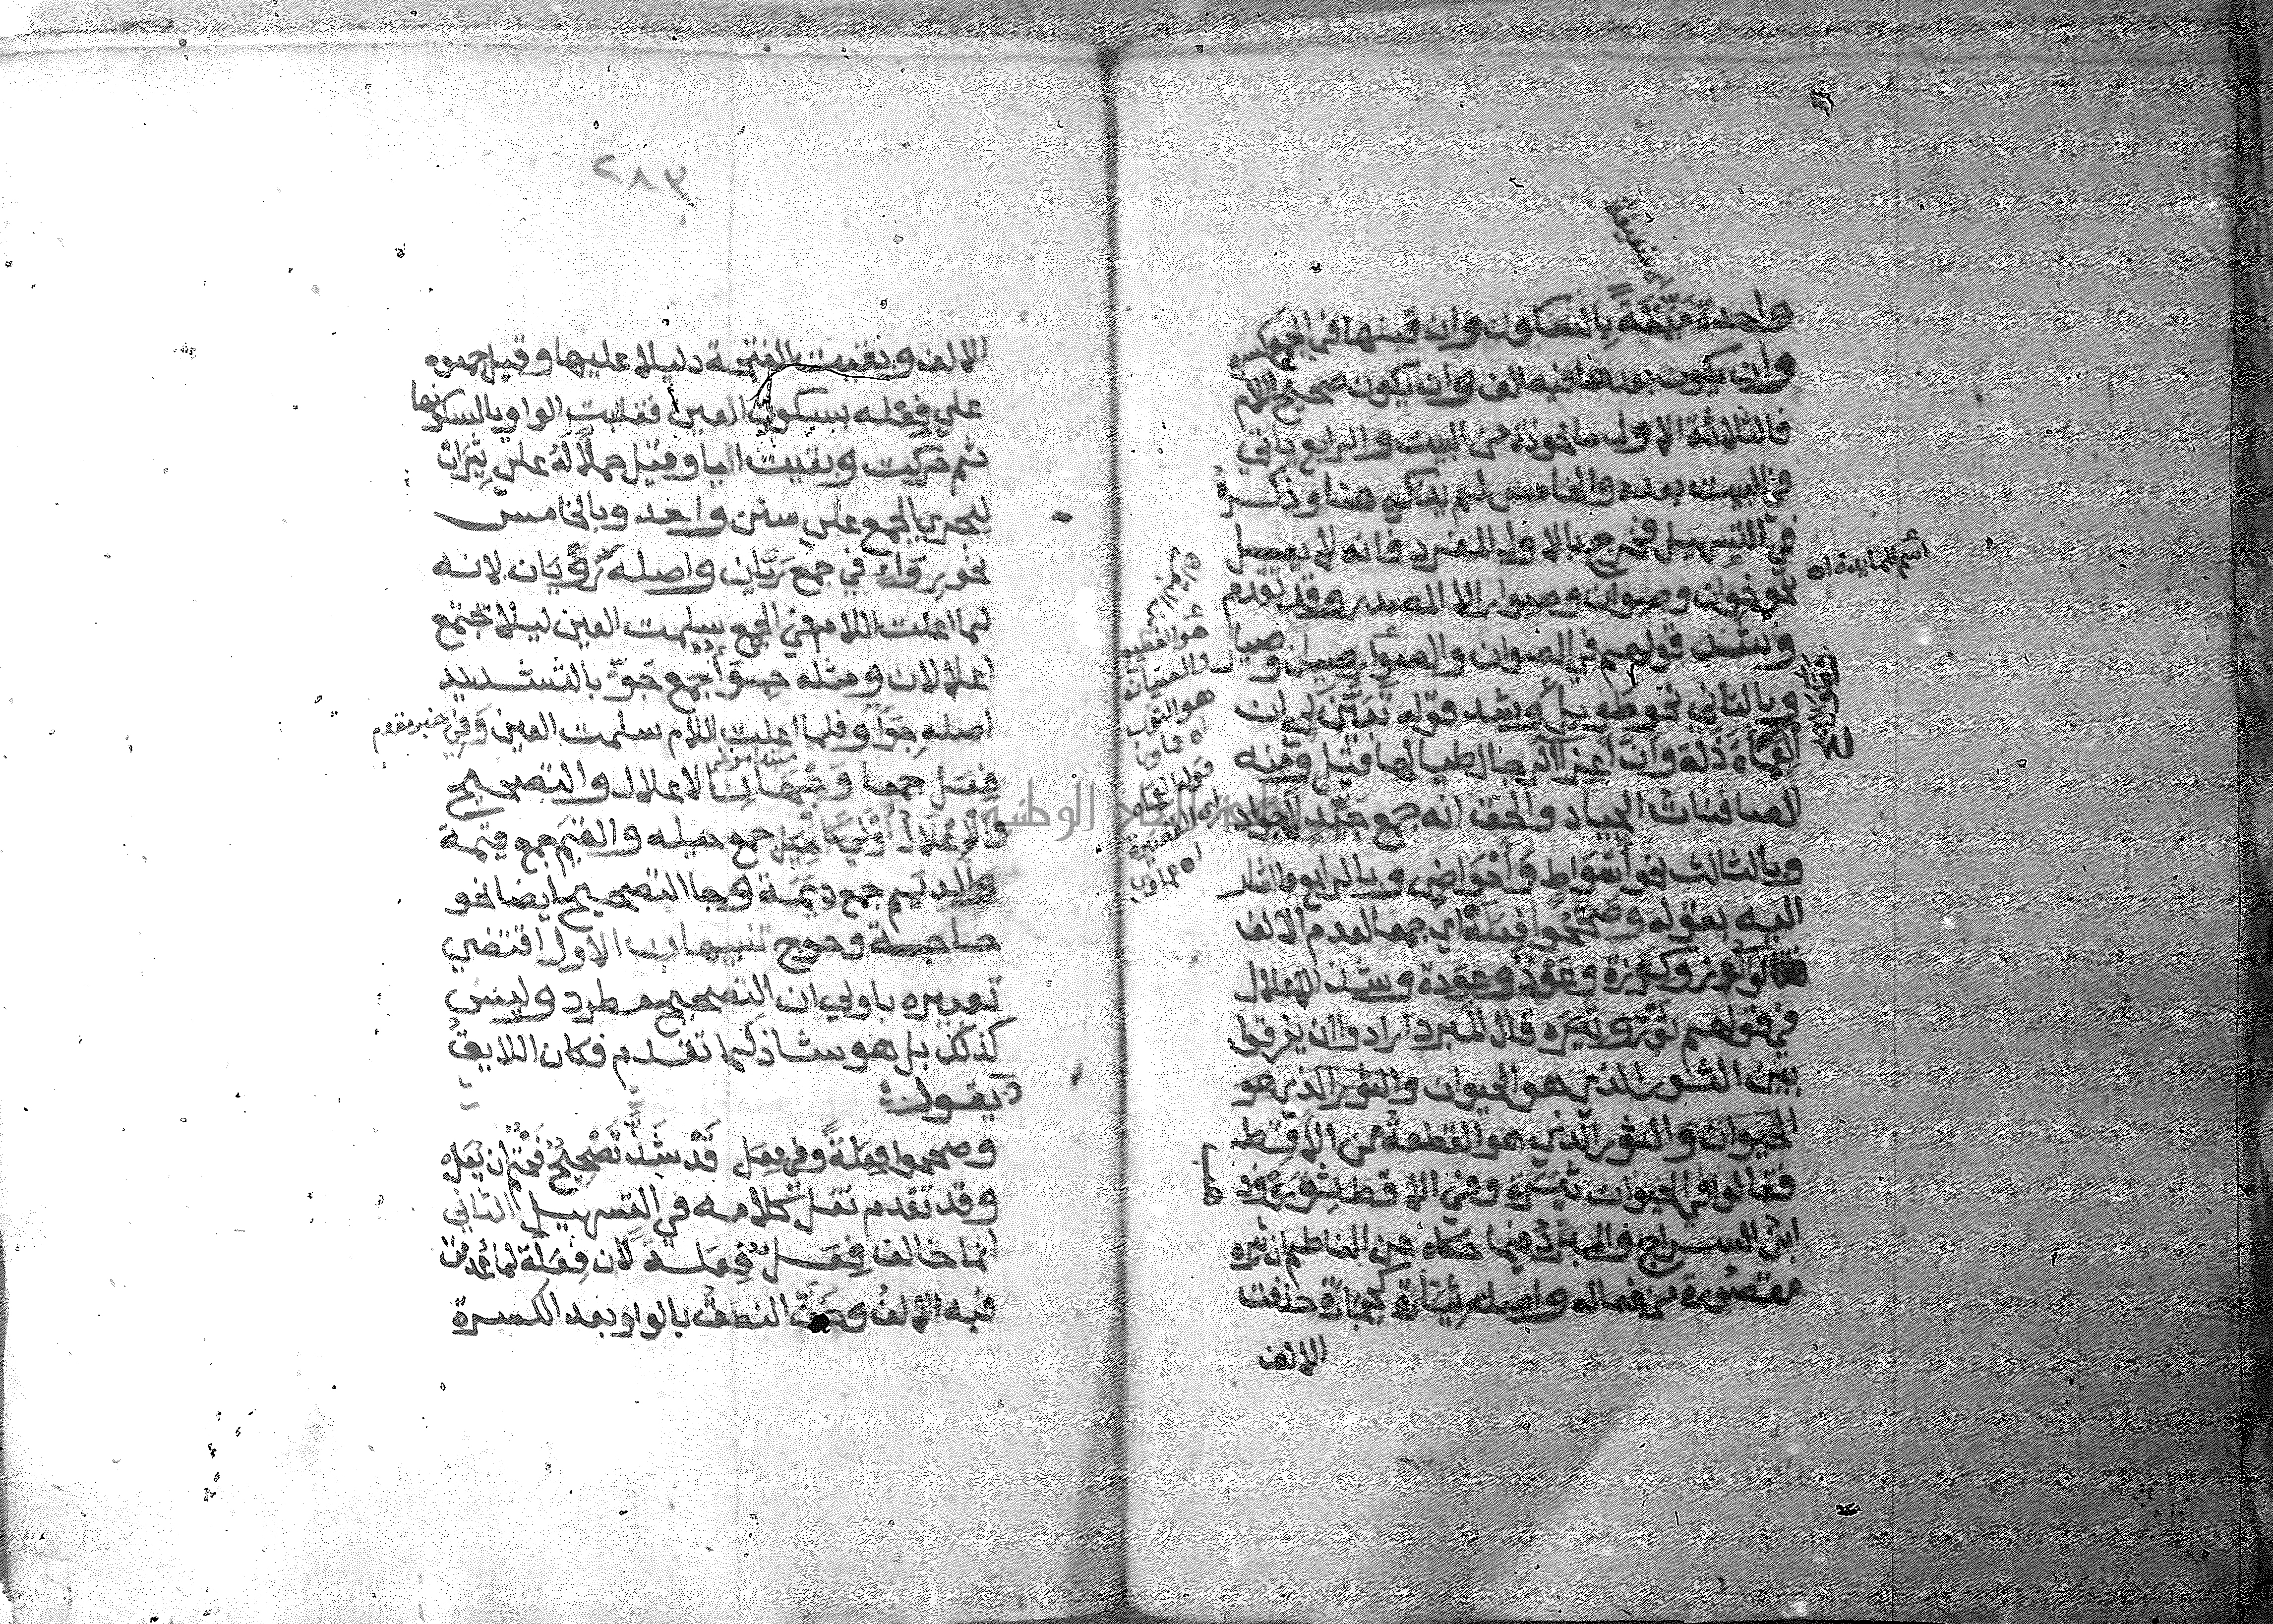 واحدة ميتة بالسكون وان قبلها في الجمع كسرة
وان يكون بعدها فيه الف وان يكون صحيح اللام
فالثلاثة الاول ماخوذة من البيت والرابع ياتي
في البيت بعده والخامس لم يذكره هنا وذكره
في التسهيل فخرج بالاول المفرد فانه لا يعل
نحو خوان وصوان وصوار الا المصدر وقد تقدم
وشذ قولهم في الصوان والصوار صيان وصيار
وبالثاني نحو طويل وشد قوله تبين لي ان
القماءة ذلة وان اعزا الرجال طيالها قيل ومنه
الصافنات الجياد والحق انه جمع جيد لا جواد
وبالثالث نحو أسواط وأحواض وبالرابع ما اشار
اليه بقوله وصححوا فعلة اي جمعا لعدم الالف
فقالوا كوز وكوزة وعود وعودة وشذ الاعلال
في قولهم ثور وثيرة قال المبرد ارادوا ان يفرقوا
بين الثور الذي هو الحيوان والثور الذي هو
الحيوان والثور الذي هو القطعة من الاقط
فقالوا في الحيوان ثيرة وفي الاقط ثورة وذ
ابن السراج والمبرد فيما حكاه عن الناظم ان ثيره
مقصورة من فعاله واصله ثيارة كحجارة حذفت
الالف
اي ضعيفة
اسم للمايدة اه
هو القطيع
والصيان
هو الثوب
٢٨٣
الالف وبقيت الفتحة دليلا عليها وقيل جمعوه
علي فعله بسكون العين فقلبت الواو يا لسكونها
ثم حركت وبقيت اليا وقيل حملا له علي ثيران
ليجري الجمع علي سنن واحد وبالخامس
نحو رواء في جمع ريان واصله رويان لانه
لما اعلت اللام في الجمع سلمت العين ليلا تجتمع
اعلالان ومثله جواء جمع جو بالتشديد
اصله جواو فلما اعلت اللام سلمت العين وفي
خبر مقدم
مبتدا مؤخر
فعل جمعا وجهان الاعلال والتصحيح
والاعلال اولي كالحيل جمع حيله والقيم جمع قيمة
والديم جمع ديمة وجا التصحيح ايضا نحو
حاجة وحوج تنبيهان الاول اقتضي
تعبيره باولي ان التصحيح مطرد وليس
كذلك بل هو شاذ كما تقدم فكان اللايق
يقول
وصححوا فعلة وفي فعل قد شذ تصحيح فحتم ان يعل
وقد تقدم نقل كلامه في التسهيل الثاني
انما خالف فعل فعلة لان فعلة لما عدمت
فيه الالف وخف النطق بالواو بعد الكسرة